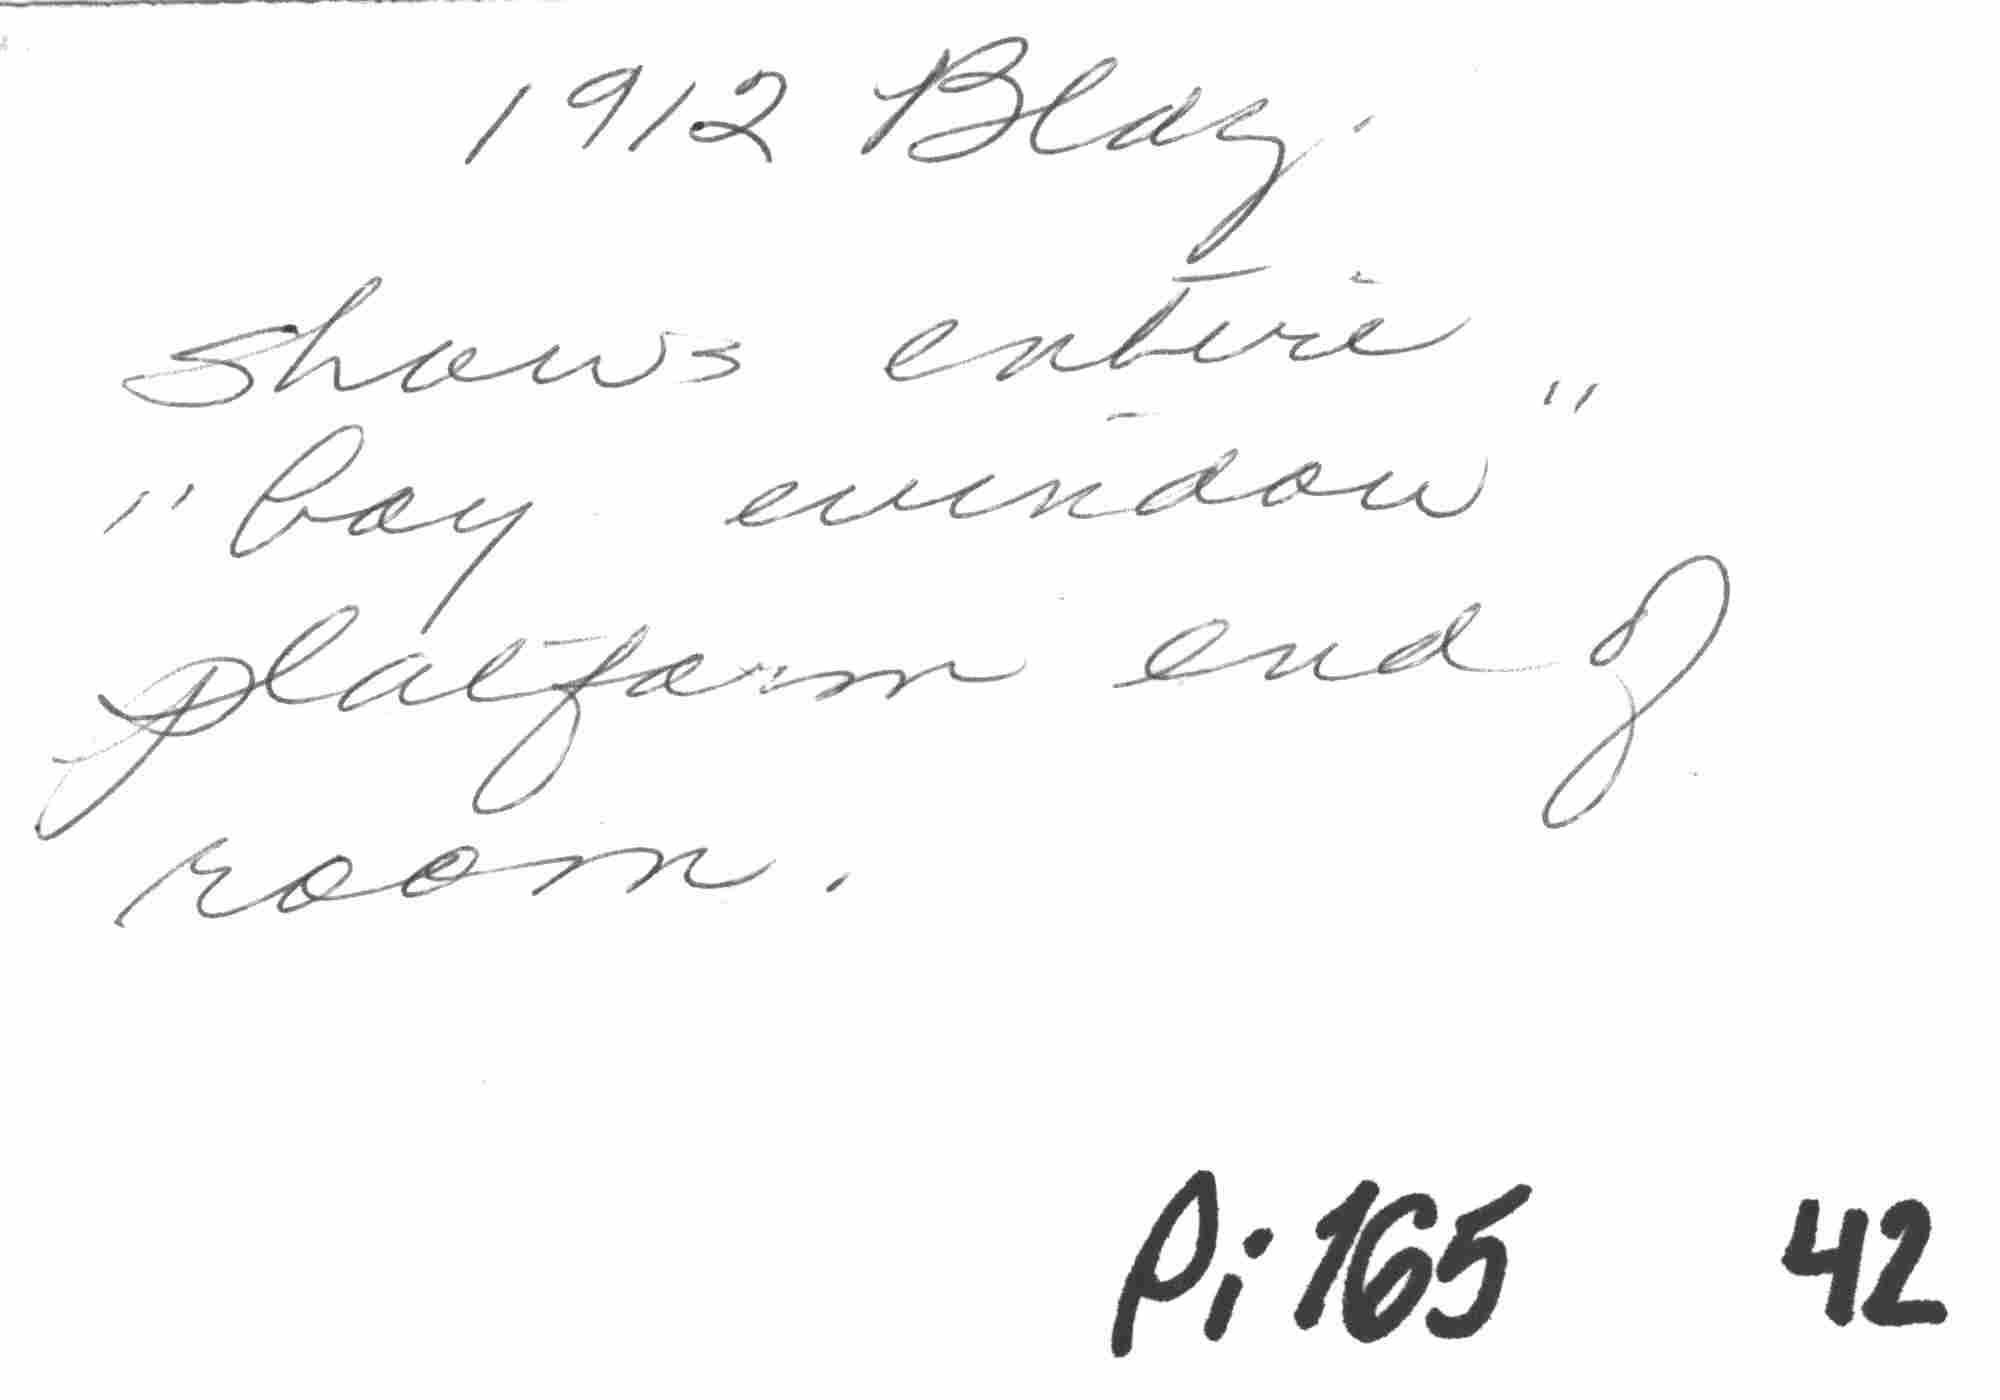 1912 Bldg.
shows entire
"bay window"
platform end of
room.
Pi 165 42